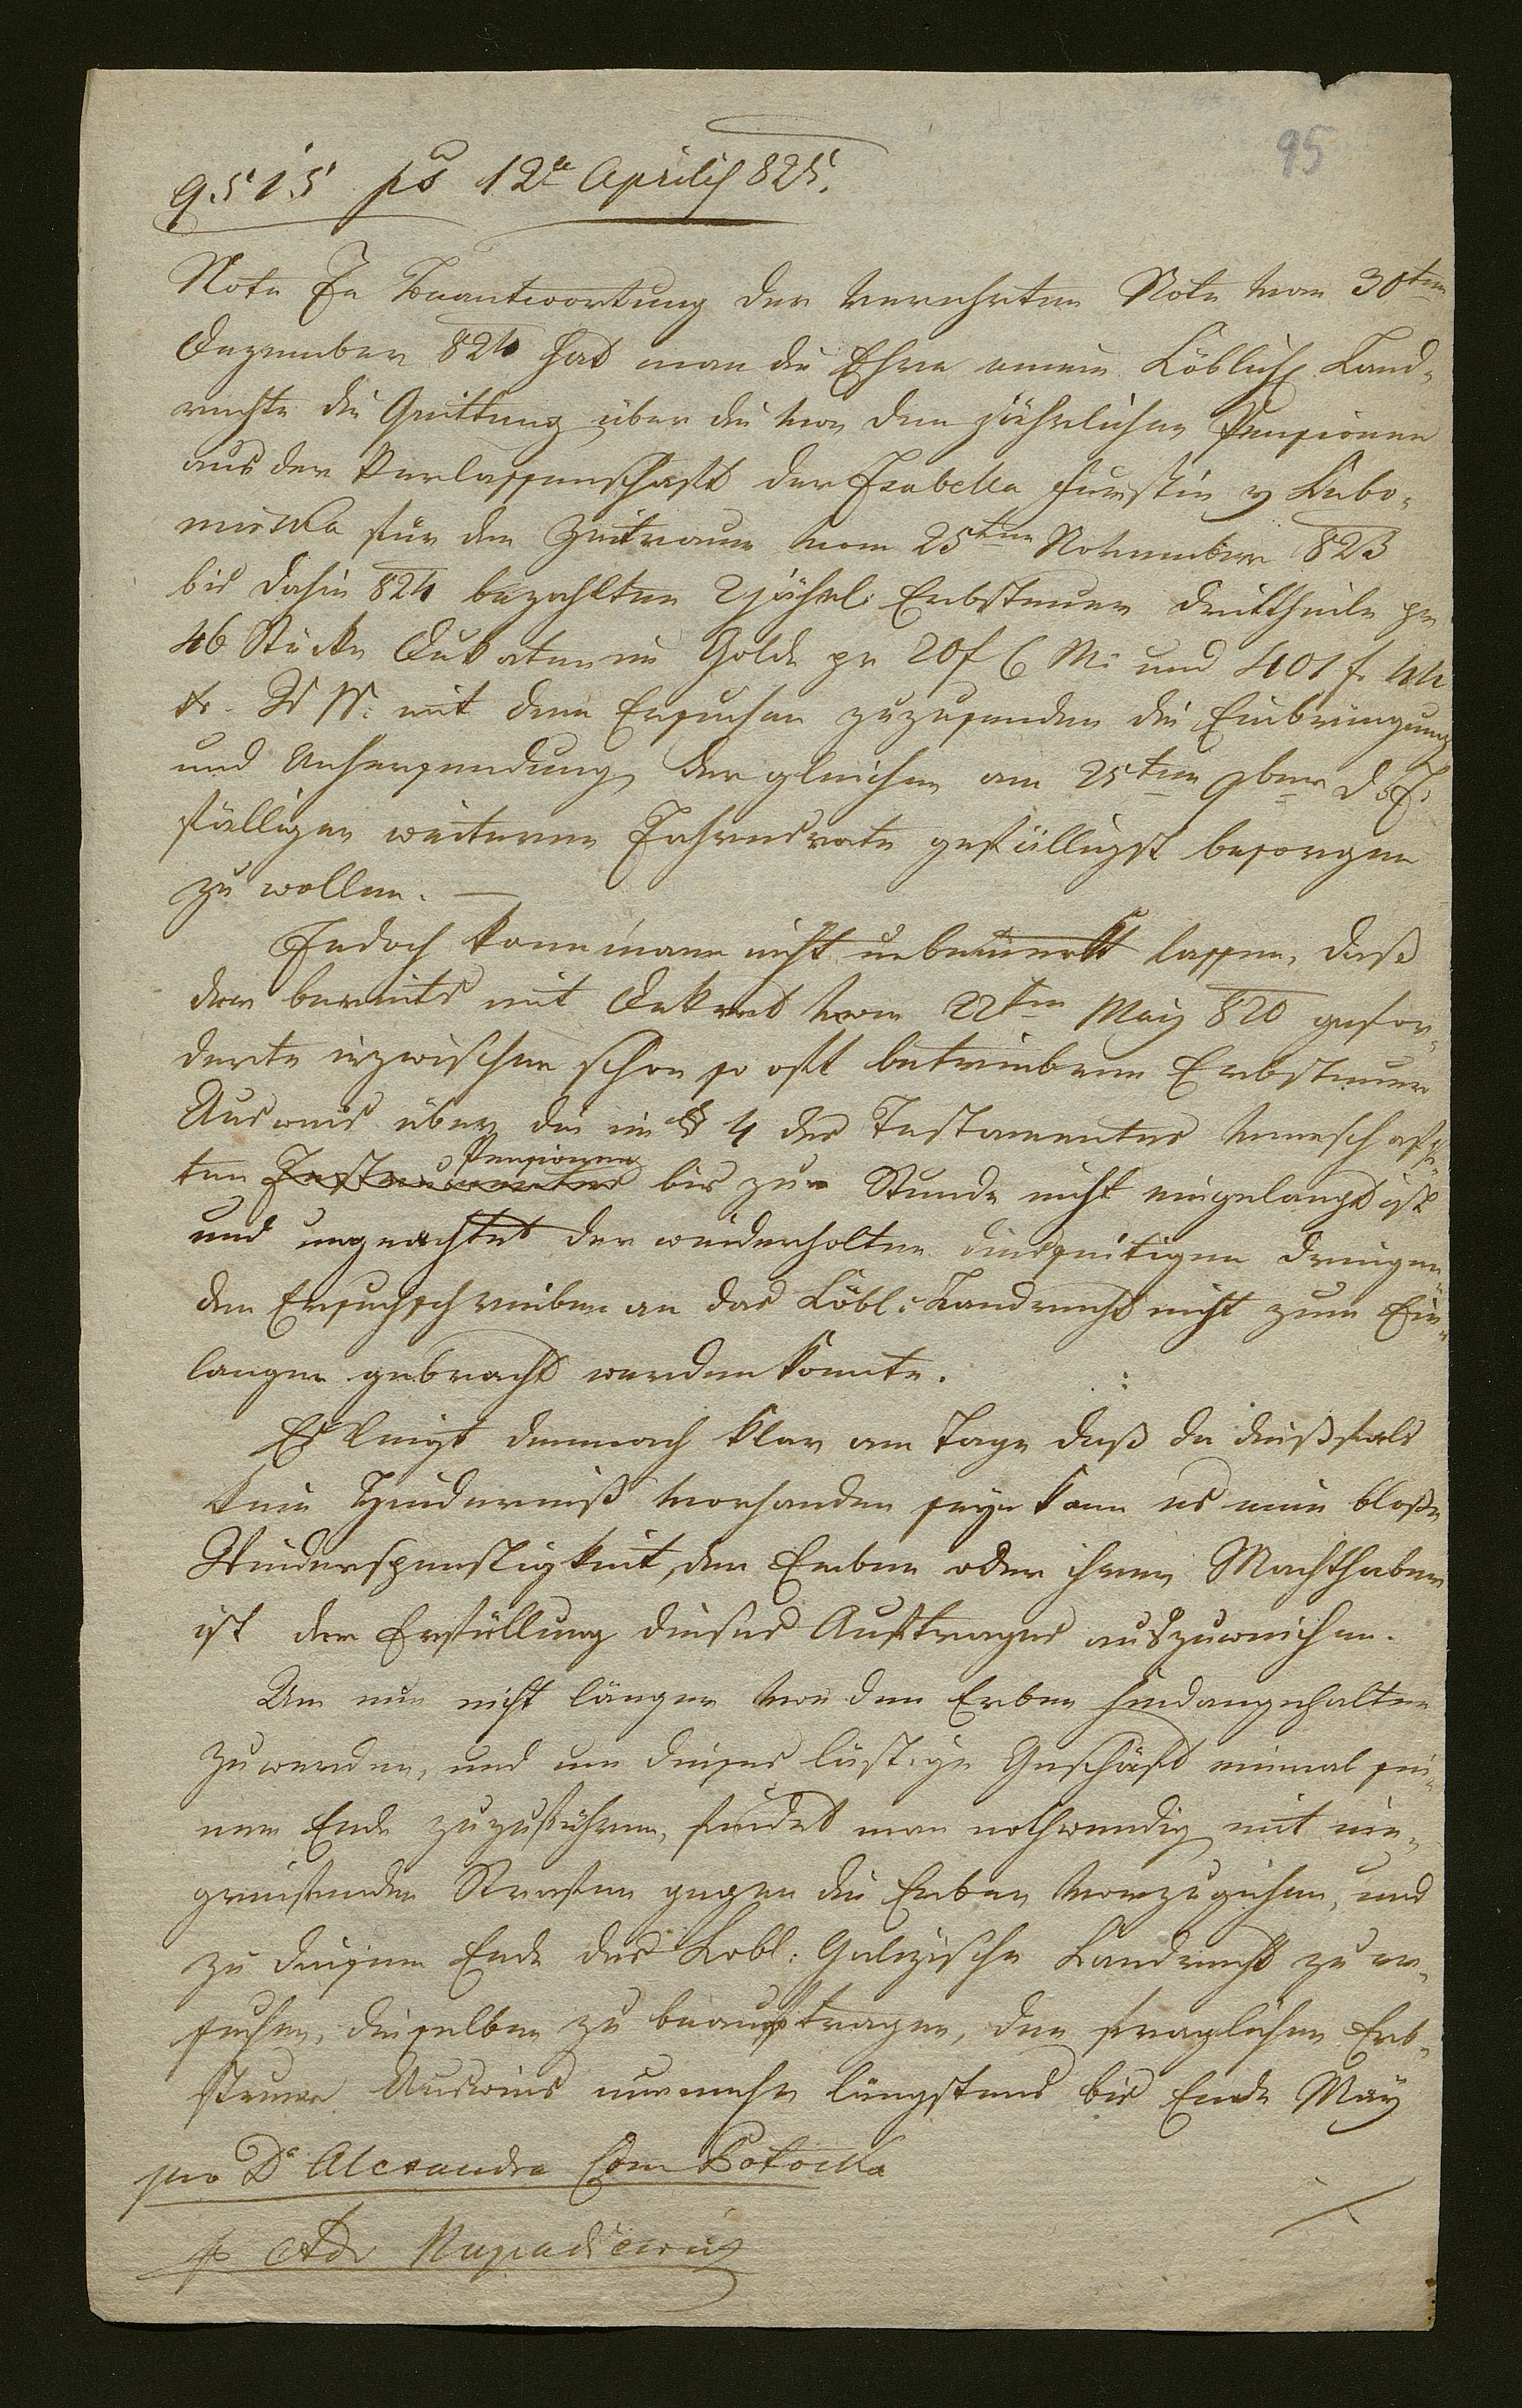 95
9515 ps 12a Aprilis 825.
Note In Beantwortung der verehrten Note vom 30ten
Dezember 824 hat man die Ehre einem Löblich Land-
rechte die Quittung über die von den jährlichen Pensionen
aus der Verlassenschaft der Isabella Fürstin Lubo-
mirska für den Zeitraum vom 25ten November 823
bis dahin 824 bezahlten 2 jährl: Erbsteuer Dritttheile pr
46 Stücke Dukaten in Golde pr 20 f 6 M: und 401 f. 44
Xr. W W: mit dem Ersuchen zuzusenden die Einbringung
und Anhersendung der gleichen am 25ten 9ber d. J.
fälligen weiteren Jahresrate gefälligst besorgen
zu wollen. —
Jedoch kann man nicht unbemerkt lassen, daß
der bereits mit Dekret vom 22ten May 820 gefor-
derte inzwischen schon so oft betriebene Erbsteuer
Ausweis über die im § 4 des Testamentes vermachs
ten Testamentes Pensionen bis zur Stunde nicht eingelangt ist
und ungeachtet der wiederholten diesseitigen dringen-
den Ersuchschreiben an das Löbl: Landrecht nicht zum Ein-
langen gebracht werden konnte.
Es liegt demnach klar am Tage daß da dießfals
kein Hinderniß vorhanden seyn kann es eine bloße
Wiederspenstigkeit der Erben oder ihrer Machthaber
ist der Erfüllung dieses Auftrages auszuweichen.
Um nun nicht länger von den Erben hindangehalten
zu werden, und um dieses lästige Geschäft einmal sei-
nem Ende zuzuführen, findet man nothwendig mit ein-
greifenden Strafen gegen die Erben vorzugehen, und
zu diesem Ende das Lobl: Galizische Landrecht zu er-
suchen, dieselben zu beauftragen, den fraglichen Erb-
steuer Ausweis nunmehr längstens bis Ende May
pro Da Alexandra Com Potocka
p Adv